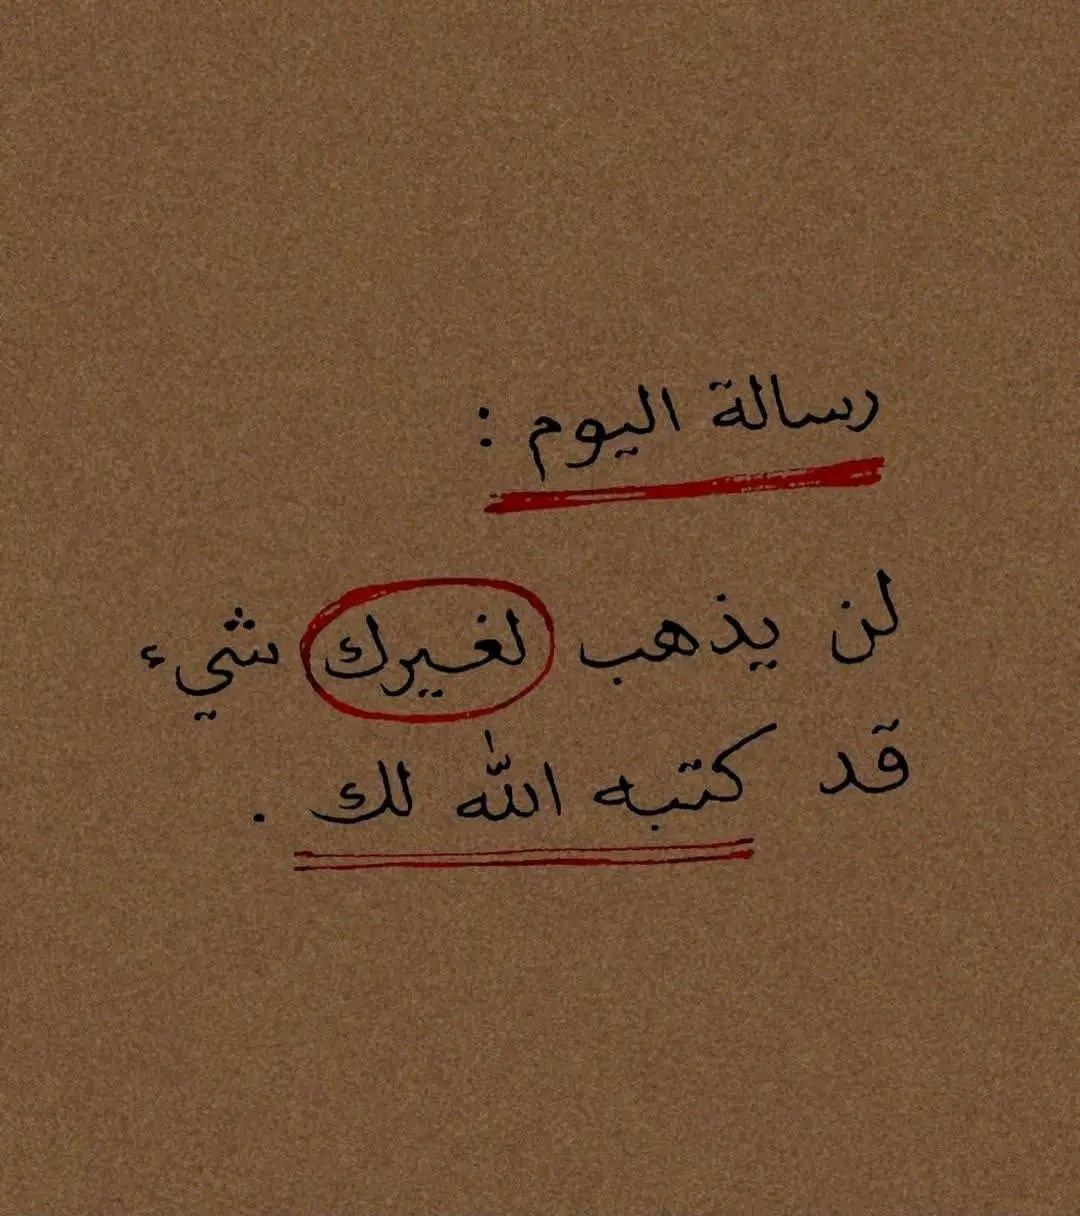 رسالة اليوم :
لن يذهب لغيرك شيء
قد كتبه الله لك .